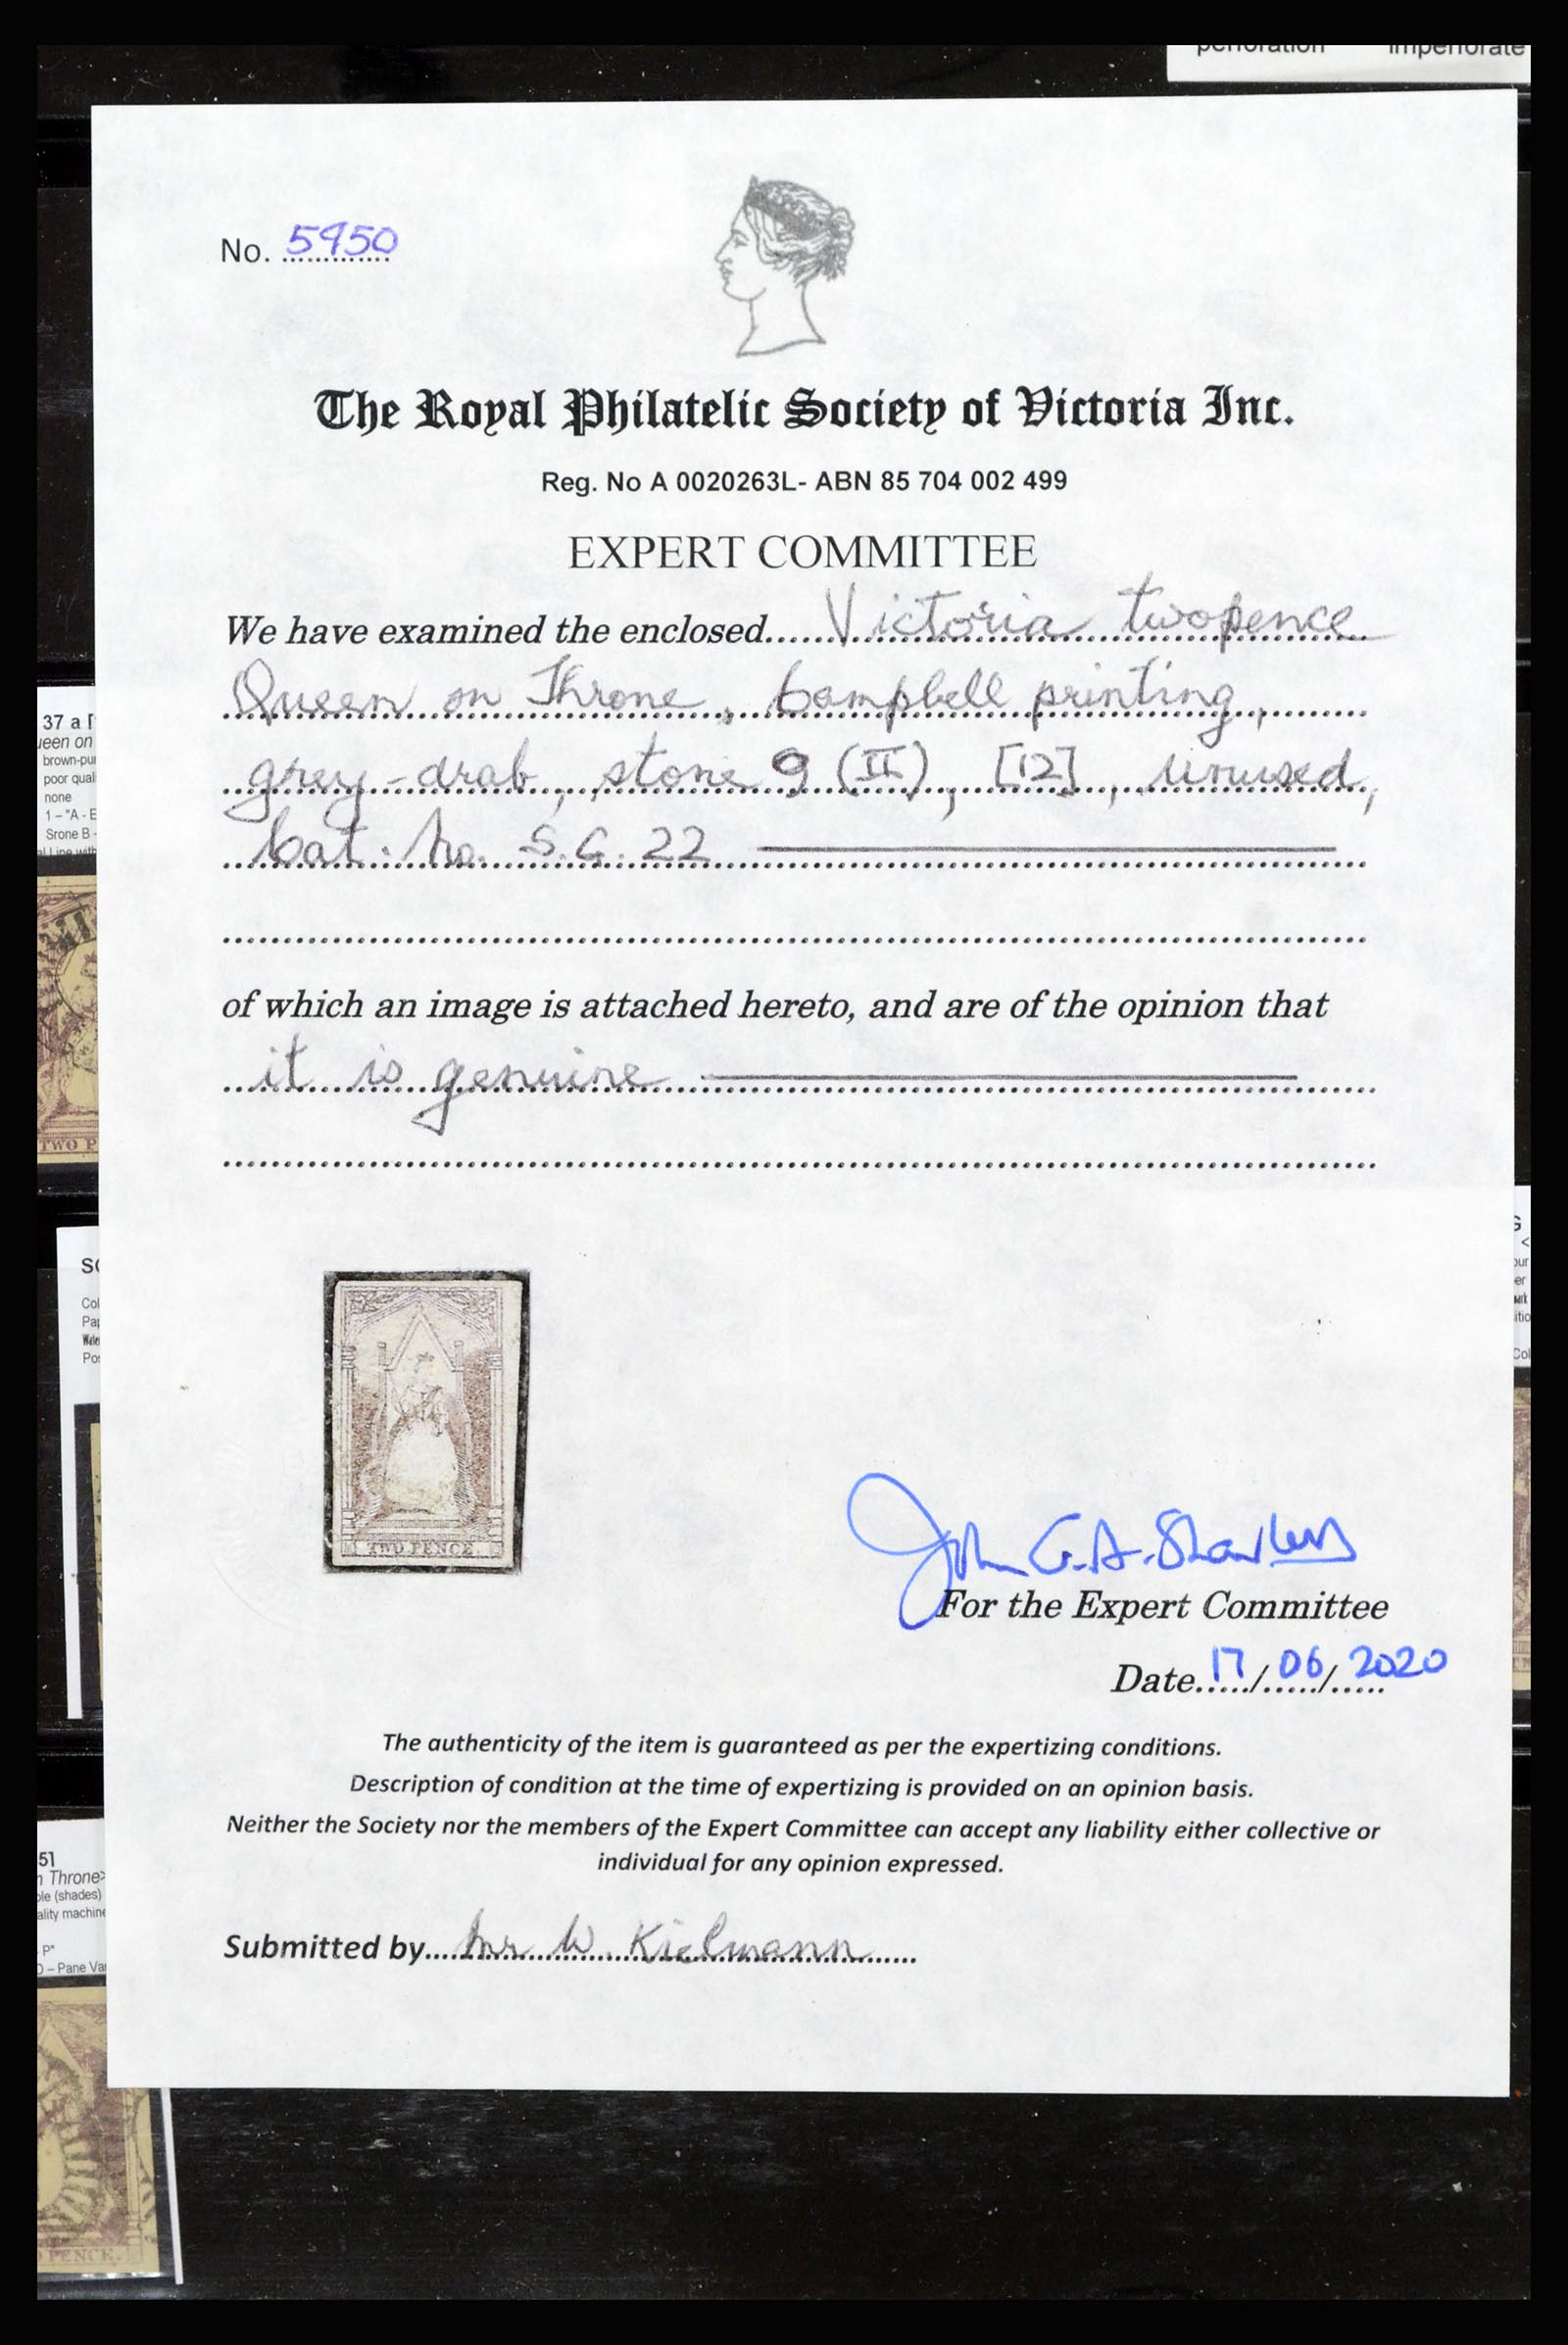 perforation imperforate
No. 5950
The Royal Philatelic Society of Victoria Inc.
Reg. No A 0020263L- ABN 85 704 002 499
EXPERT COMMITTEE
We have examined the enclosed Victoria twopence
Queen on Throne, Campbell printing,
grey-drab, stone 9 (II), [12], unused,
Cat. No. S.G. 22
of which an image is attached hereto, and are of the opinion that
it is genuine
TWO PENCE.
For the Expert Committee
Date 17/06/2020
The authenticity of the item is guaranteed as per the expertizing conditions.
Description of condition at the time of expertizing is provided on an opinion basis.
Neither the Society nor the members of the Expert Committee can accept any liability either collective or
individual for any opinion expressed.
Submitted by Mr W. Kielmann
37 a
een on
brown-pur
poor quali
none
1 – "A - E
Srone B -
al Line with
TWO P
SC
Col
Pap
Pos
51
Throne>
ple (shades)
ality machine
P"
D – Pane Va
PENCE.